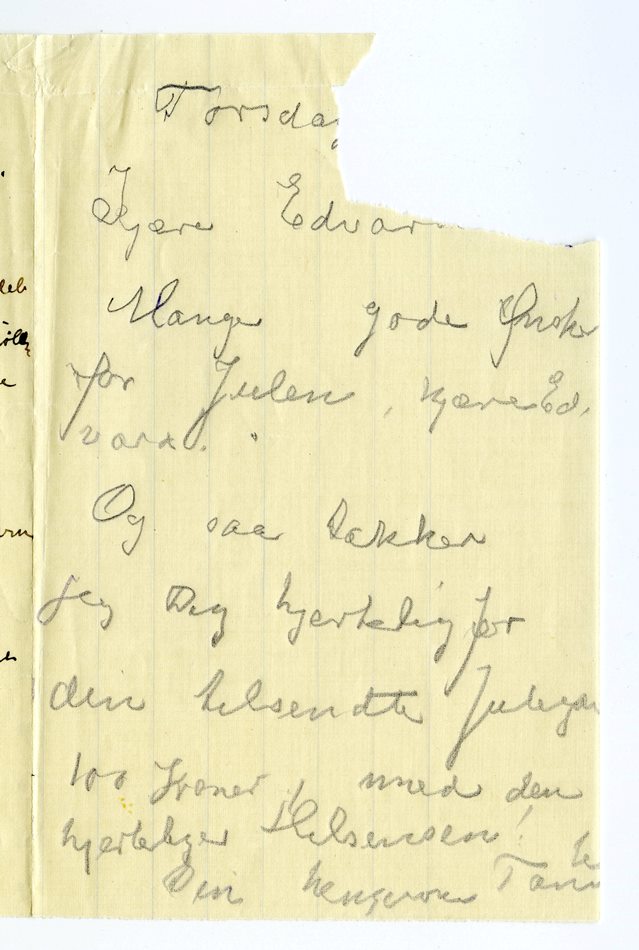 Torsdag
Kjære Edvard
Mange gode Ønsker
for Julen, kjære Ed-
vard.
Og saa takker
jeg Dig hjertelig for
den tilsendte Julega
100 Kroner, med den
hjerteligst Hilsensen!
Din hengivne Tante